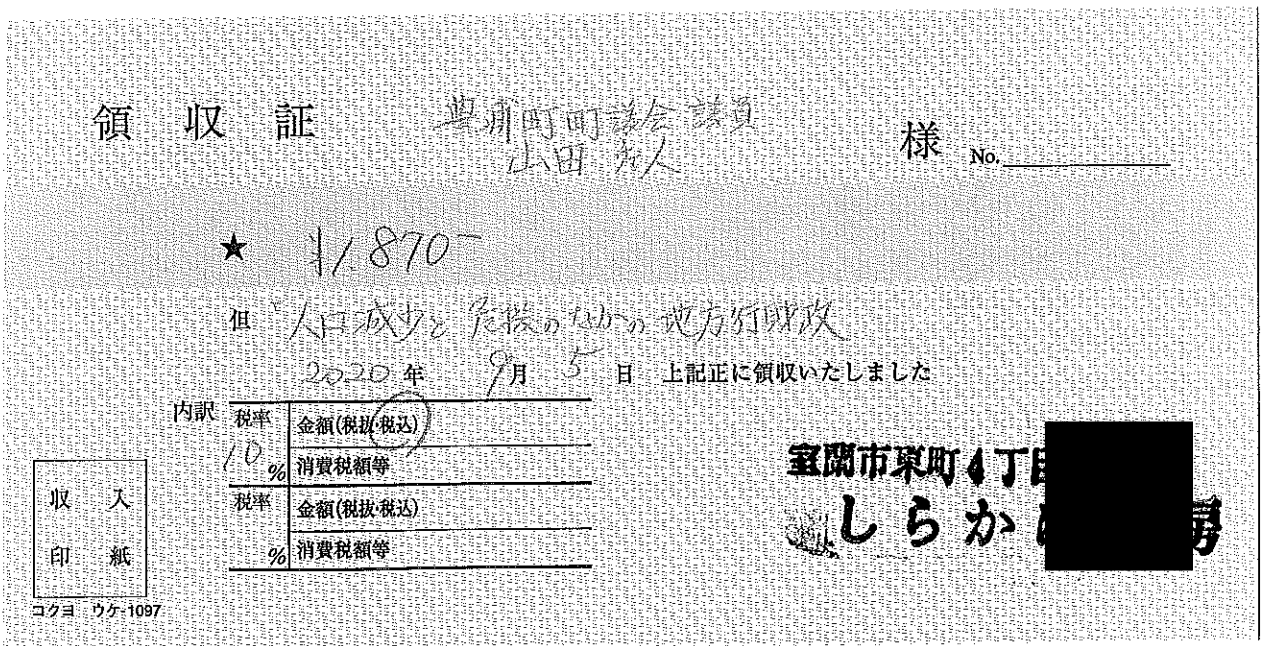 領収証 豊浦町町議会議員 様 No.
山田秀人
★ ¥1,870-
但 "人口減少と危機のなかの地方行財政
2020年 9月 5日 上記正に領収いたしました
内訳 税率 10% 金額(税抜・税込)
消費税額等
税率 % 金額(税抜・税込)
消費税額等
収入
印紙
コクヨ ウケ-1097
室蘭市東町4丁目
しらか 房